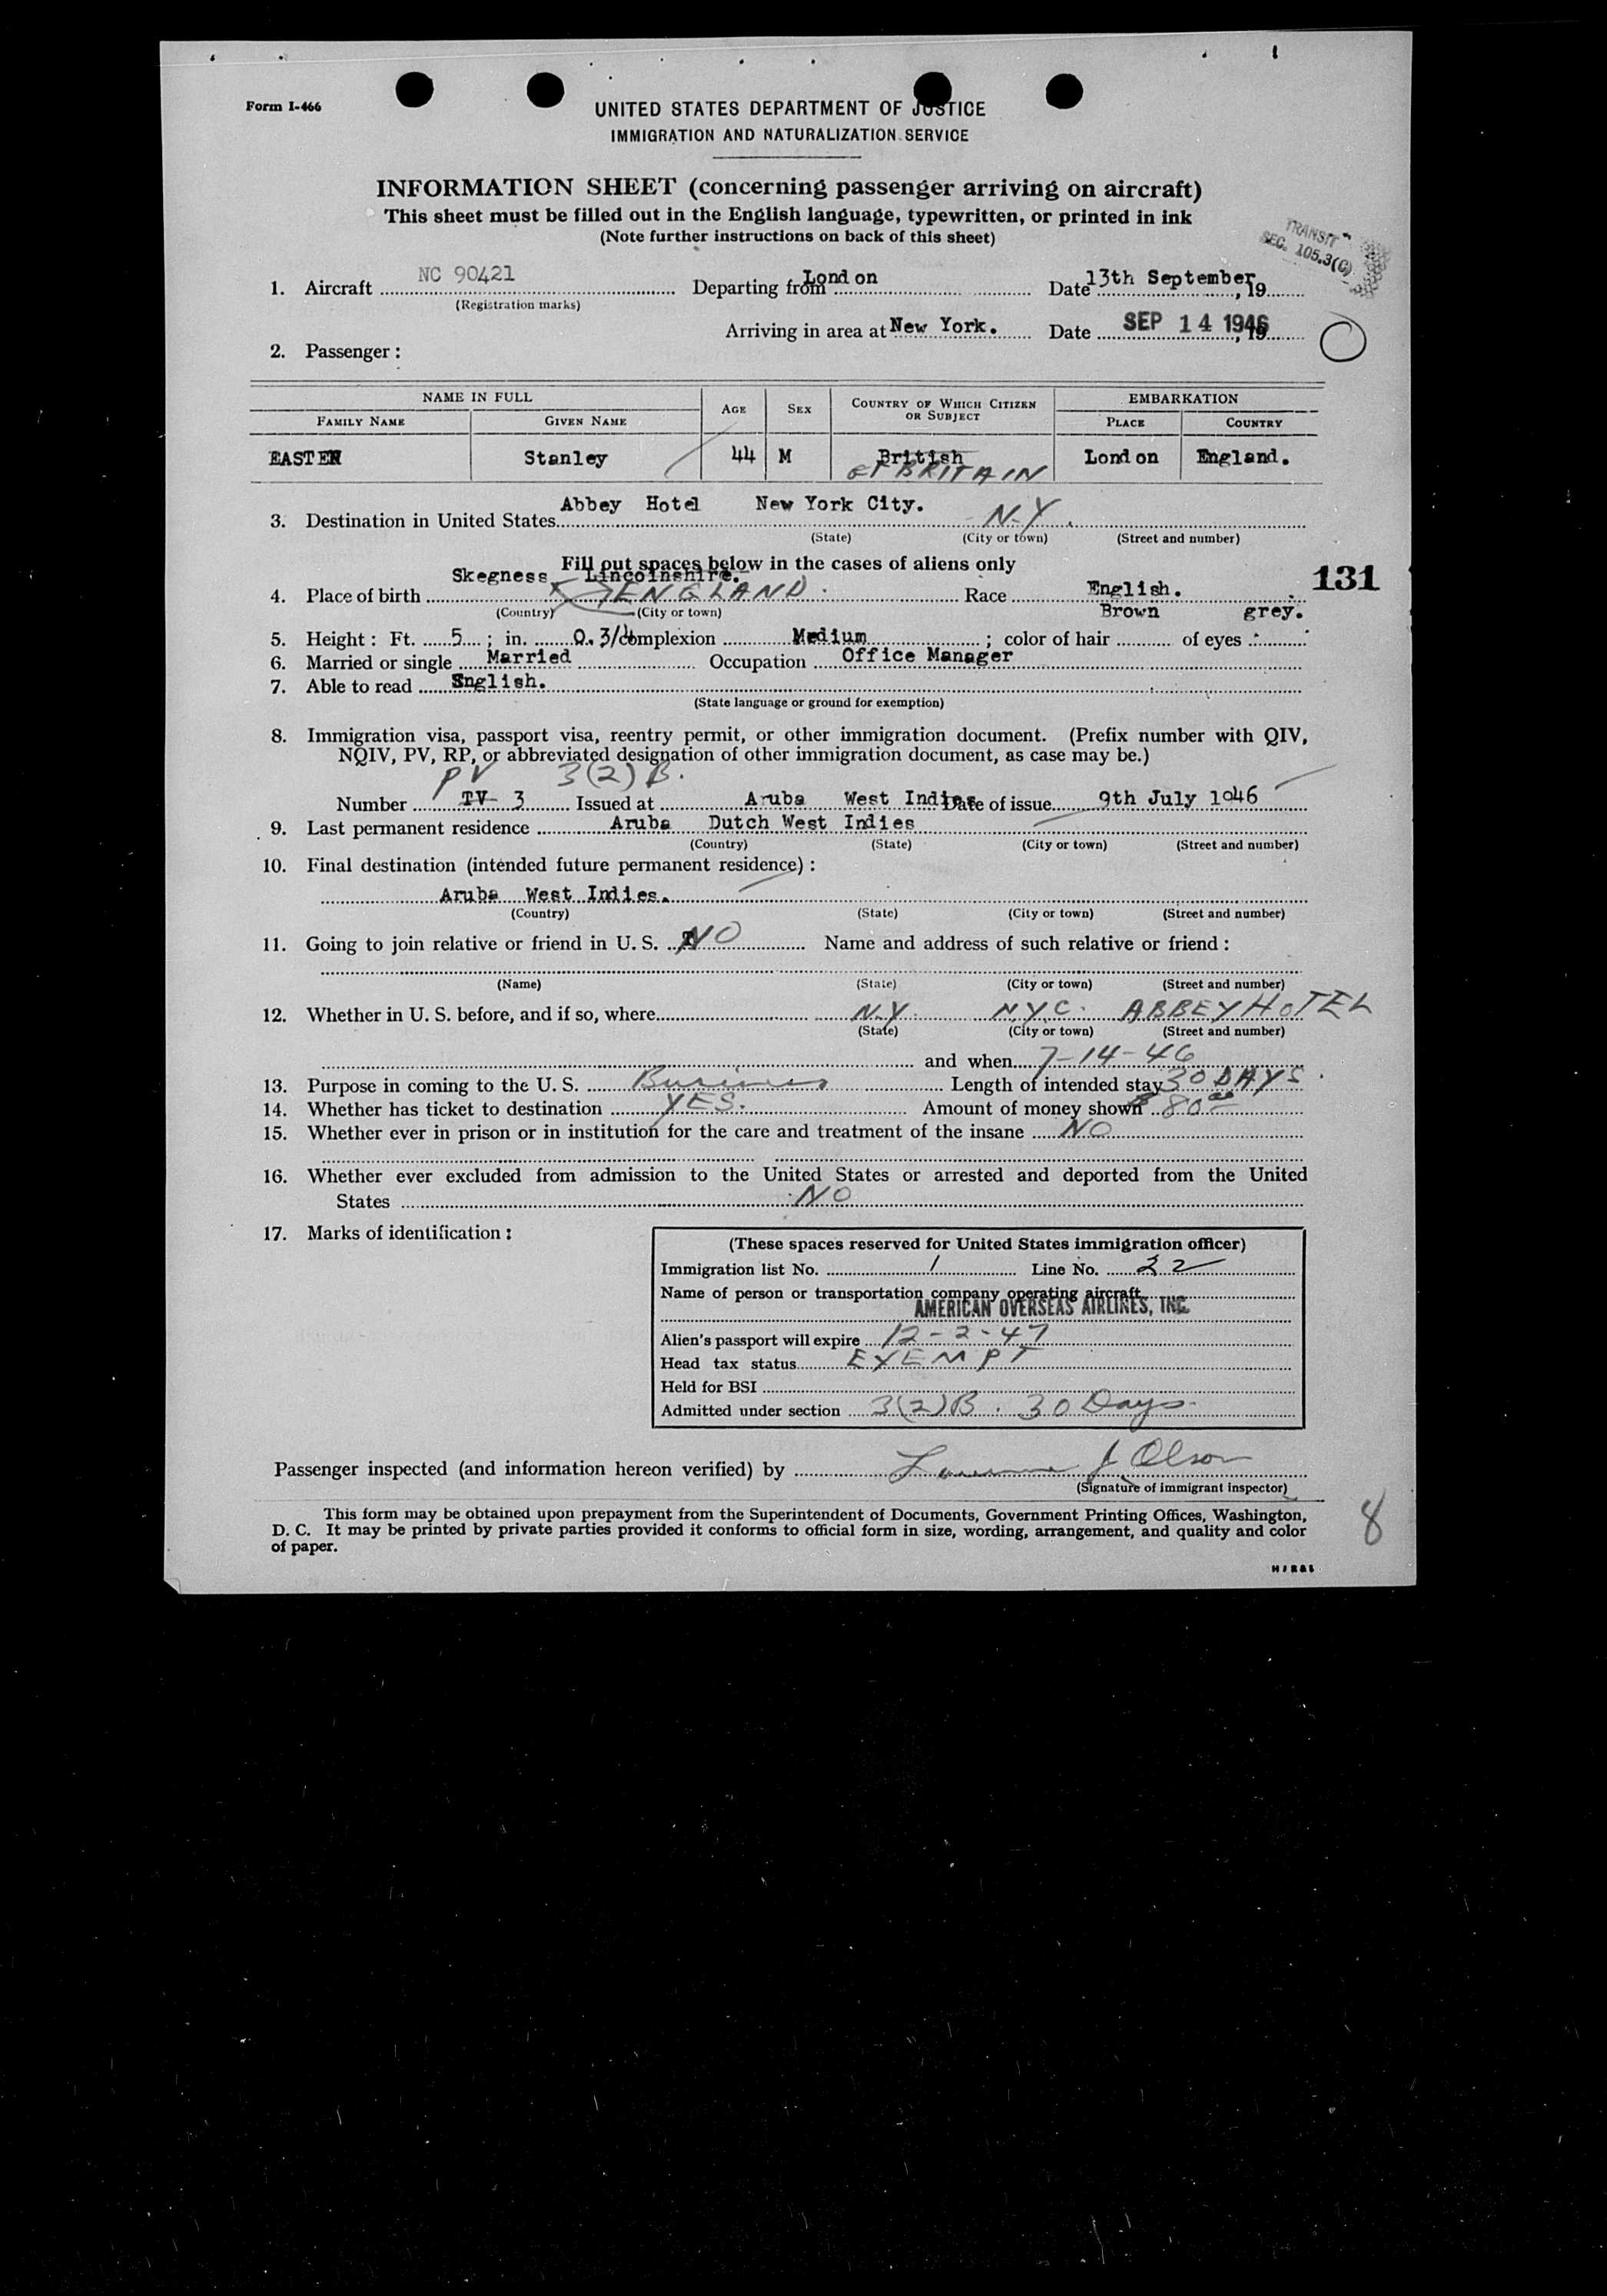 Form I-466
UNITED STATES DEPARTMENT OF JUSTICE
IMMIGRATION AND NATURALIZATION SERVICE
INFORMATION SHEET (concerning passenger arriving on aircraft)
This sheet must be filled out in the English language, typewritten, or printed in ink
(Note further instructions on back of this sheet)
TRANSIT
SEC. 105.3(C)
1. Aircraft NC 90421 Departing from London Date 13th September, 19
(Registration marks)
Arriving in area at New York. Date SEP 14 1946, 19
2. Passenger:
NAME IN FULL AGE SEX COUNTRY OF WHICH CITIZEN OR SUBJECT EMBARKATION
FAMILY NAME GIVEN NAME PLACE COUNTRY
EASTEN Stanley 44 M British London England.
GT BRITAIN
Abbey Hotel New York City.
3. Destination in United States N.Y.
(State) (City or town) (Street and number)
Fill out spaces below in the cases of aliens only
Skegness Lincolnshire. 131
4. Place of birth ENGLAND. Race English.
(Country) (City or town) Brown grey.
5. Height: Ft. 5; in. 0.3/4 complexion Medium; color of hair of eyes
6. Married or single Married Occupation Office Manager
7. Able to read English.
(State language or ground for exemption)
8. Immigration visa, passport visa, reentry permit, or other immigration document. (Prefix number with QIV,
NQIV, PV, RP, or abbreviated designation of other immigration document, as case may be.)
PV 3(2) B.
Number TV 3 Issued at Aruba West Indies Date of issue 9th July 1946
9. Last permanent residence Aruba Dutch West Indies
(Country) (State) (City or town) (Street and number)
10. Final destination (intended future permanent residence):
Aruba West Indies.
(Country) (State) (City or town) (Street and number)
11. Going to join relative or friend in U. S. NO Name and address of such relative or friend:
(Name) (State) (City or town) (Street and number)
12. Whether in U. S. before, and if so, where N.Y. N.Y.C. ABBEY HOTEL
(State) (City or town) (Street and number)
and when 7-14-46
13. Purpose in coming to the U. S. Business Length of intended stay 30 DAYS.
14. Whether has ticket to destination YES. Amount of money shown $80.00
15. Whether ever in prison or in institution for the care and treatment of the insane NO
16. Whether ever excluded from admission to the United States or arrested and deported from the United
States NO
17. Marks of identification:
(These spaces reserved for United States immigration officer)
Immigration list No. 1 Line No. 22
Name of person or transportation company operating aircraft
AMERICAN OVERSEAS AIRLINES, INC.
Alien's passport will expire 12-2-47
Head tax status EXEMPT
Held for BSI
Admitted under section 3(2)B. 30 Days.
Passenger inspected (and information hereon verified) by J Olson
(Signature of immigrant inspector)
This form may be obtained upon prepayment from the Superintendent of Documents, Government Printing Offices, Washington,
D. C. It may be printed by private parties provided it conforms to official form in size, wording, arrangement, and quality and color
of paper.
8